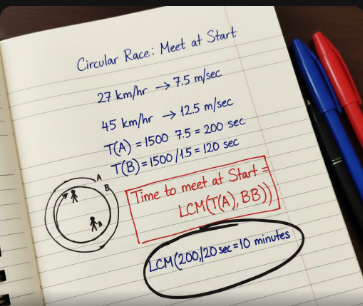 Circular Race: Meet at Start
27 km/hr → 7.5 m/sec
45 km/hr → 12.5 m/sec
T(A) = 1500 7.5 = 200 sec
T(B) = 1500/1.5 = 120 sec
A
B
B
Time to meet at Start =
LCM(T(A), BB))
LCM(200,120 sec = 10 minutes